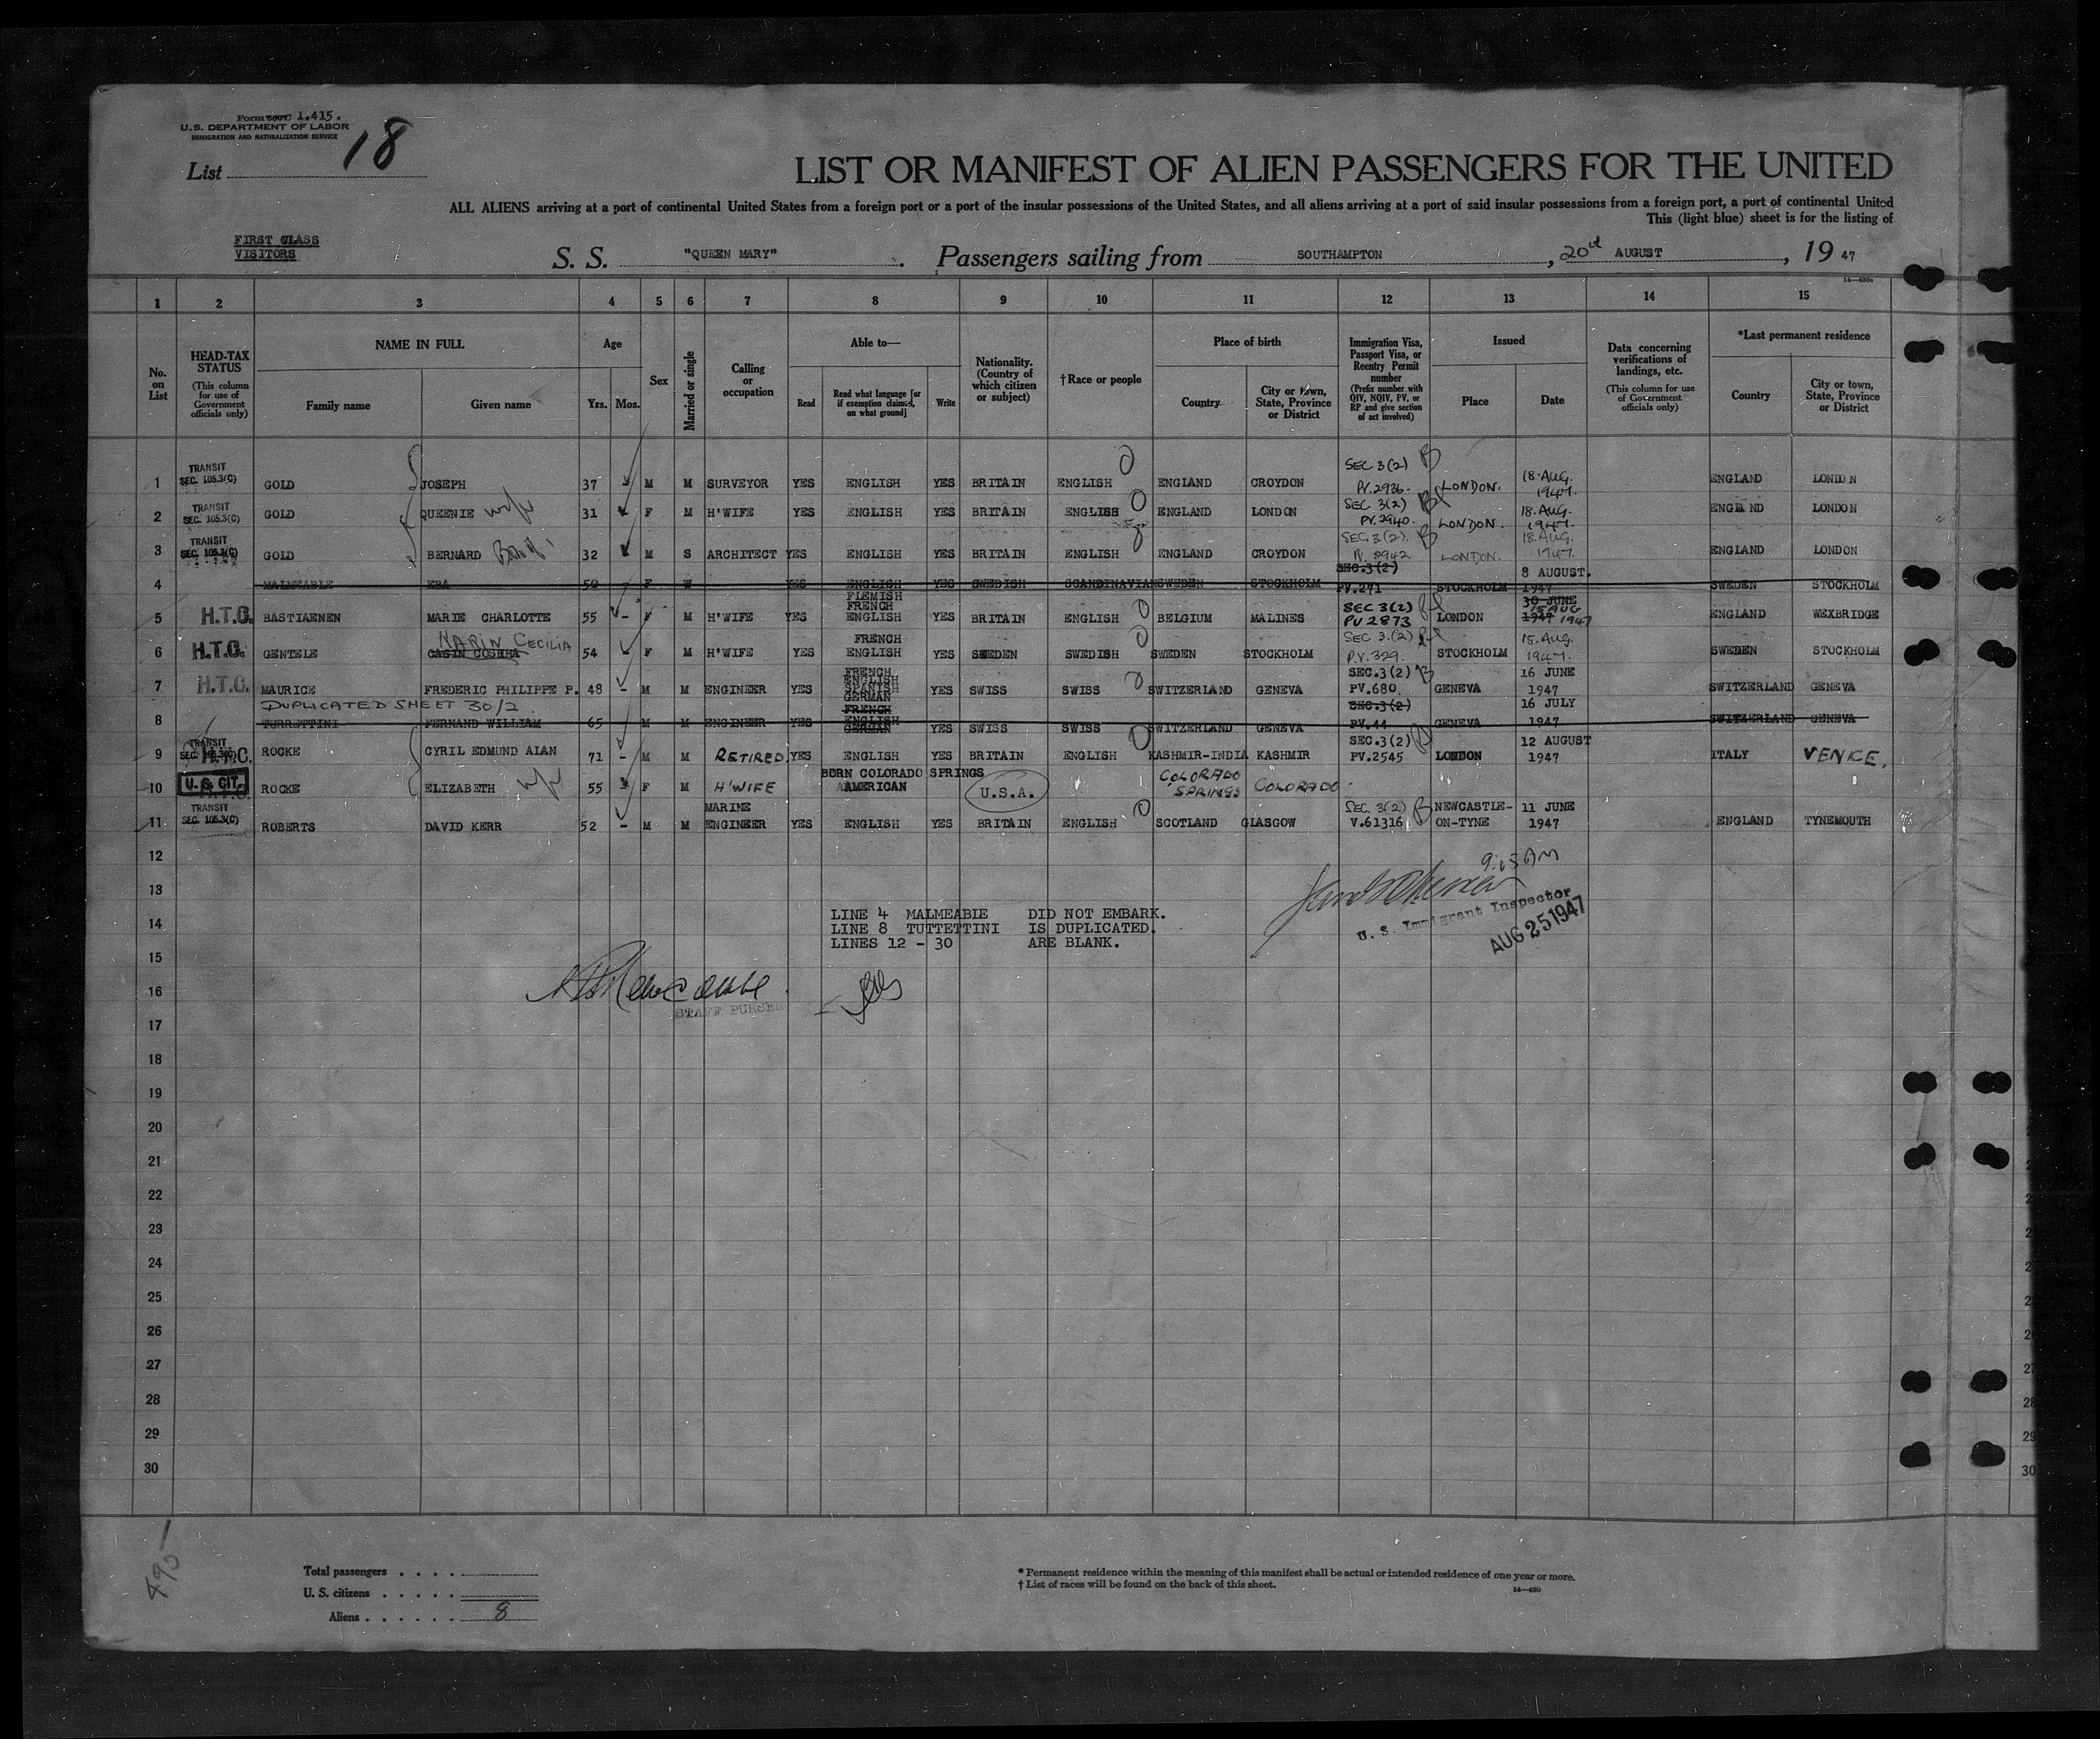 Form 500C 1.415.
U.S. DEPARTMENT OF LABOR
IMMIGRATION AND NATURALIZATION SERVICE
List 18
LIST OR MANIFEST OF ALIEN PASSENGERS FOR THE UNITED
ALL ALIENS arriving at a port of continental United States from a foreign port or a port of the insular possessions of the United States, and all aliens arriving at a port of said insular possessions from a foreign port, a port of continental United
This (light blue) sheet is for the listing of
FIRST CLASS
VISITORS
S. S. "QUEEN MARY". Passengers sailing from SOUTHAMPTON, 20th AUGUST, 19 47
14—430a
1 2 3 4 5 6 7 8 9 10 11 12 13 14 15
No. on List
HEAD-TAX STATUS (This column for use of Government officials only)
NAME IN FULL Family name Given name
Age Yrs. Mos.
Sex
Married or single
Calling or occupation
Able to— Read Read what language [or if exemption claimed, on what ground] Write
Nationality. (Country of which citizen or subject)
†Race or people
Place of birth Country City or town, State, Province or District
Immigration Visa, Passport Visa, or Reentry Permit number (Prefix number with QIV, NQIV, PV, or RP and give section of act involved)
Issued Place Date
Data concerning verifications of landings, etc. (This column for use of Government officials only)
*Last permanent residence Country City or town, State, Province or District
1 TRANSIT SEC. 105.3(C) GOLD JOSEPH 37 M M SURVEYOR YES ENGLISH YES BRITAIN ENGLISH ENGLAND CROYDON SEC 3(2) PV.2936. LONDON. 18.AUG. 1947. ENGLAND LONDON
2 TRANSIT SEC. 105.3(C) GOLD QUEENIE wife 31 F M H'WIFE YES ENGLISH YES BRITAIN ENGLISH ENGLAND LONDON SEC 3(2) PV.2940. LONDON. 18.AUG. 1947. ENGLAND LONDON
3 TRANSIT SEC. 105.3(C) GOLD BERNARD 32 M S ARCHITECT YES ENGLISH YES BRITAIN ENGLISH ENGLAND CROYDON SEC.3(2). PV.2942. LONDON. 18.AUG. 1947. ENGLAND LONDON
4 MALMEABLE EBA 50 F W YES ENGLISH YES SWEDISH SCANDINAVIAN SWEDEN STOCKHOLM SEC.3(2) PV.271 STOCKHOLM 8 AUGUST. 1947 SWEDEN STOCKHOLM
5 H.T.C. BASTIAENEN MARIE CHARLOTTE 55 - F M H'WIFE YES FLEMISH FRENCH ENGLISH YES BRITAIN ENGLISH BELGIUM MALINES SEC 3(2) PV 2873 LONDON 30 JUNE 1947 15 AUG 1947 ENGLAND WEXBRIDGE
6 H.T.C. GENTELE CASIN COSHHA KARIN CECILIA 54 F M H'WIFE YES FRENCH ENGLISH YES SWEDEN SWEDISH SWEDEN STOCKHOLM SEC 3.(2) P.V. 329. STOCKHOLM 15.AUG. 1947. SWEDEN STOCKHOLM
7 H.T.C. MAURICE FREDERIC PHILIPPE P. 48 - M M ENGINEER YES FRENCH ENGLISH SPANISH GERMAN YES SWISS SWISS SWITZERLAND GENEVA SEC.3(2) PV.680. GENEVA 16 JUNE 1947 SWITZERLAND GENEVA
DUPLICATED SHEET 30/2
8 TURRETTINI FERNAND WILLIAM 65 M M ENGINEER YES FRENCH ENGLISH GERMAN YES SWISS SWISS SWITZERLAND GENEVA SEC.3(2) PV.44 GENEVA 16 JULY 1947 SWITZERLAND GENEVA
9 TRANSIT SEC. 105.3(C) H.T.C. ROCKE CYRIL EDMUND ALAN 71 - M M RETIRED. YES ENGLISH YES BRITAIN ENGLISH KASHMIR-INDIA KASHMIR SEC.3(2) PV.2545 LONDON 12 AUGUST 1947 ITALY VENICE.
10 U.S. CIT. ROCKE ELIZABETH wife 55 F M H'WIFE BORN COLORADO SPRINGS AMERICAN U.S.A. COLORADO SPRINGS COLORADO
11 TRANSIT SEC. 105.3(C) ROBERTS DAVID KERR 52 - M M MARINE ENGINEER YES ENGLISH YES BRITAIN ENGLISH SCOTLAND GLASGOW SEC. 3(2) V.61316 NEWCASTLE-ON-TYNE 11 JUNE 1947 ENGLAND TYNEMOUTH
12
13
14
15
16
17
18
19
20
21
22
23
24
25
26
27
28
29
30
9:05 AM
U. S. Immigrant Inspector
AUG 25 1947
LINE 4 MALMEABIE DID NOT EMBARK.
LINE 8 TUTTETTINI IS DUPLICATED.
LINES 12 - 30 ARE BLANK.
STAFF PURSER
Total passengers . . . .
U. S. citizens . . . . .
Aliens . . . . . . 8
* Permanent residence within the meaning of this manifest shall be actual or intended residence of one year or more.
† List of races will be found on the back of this sheet.
14—430